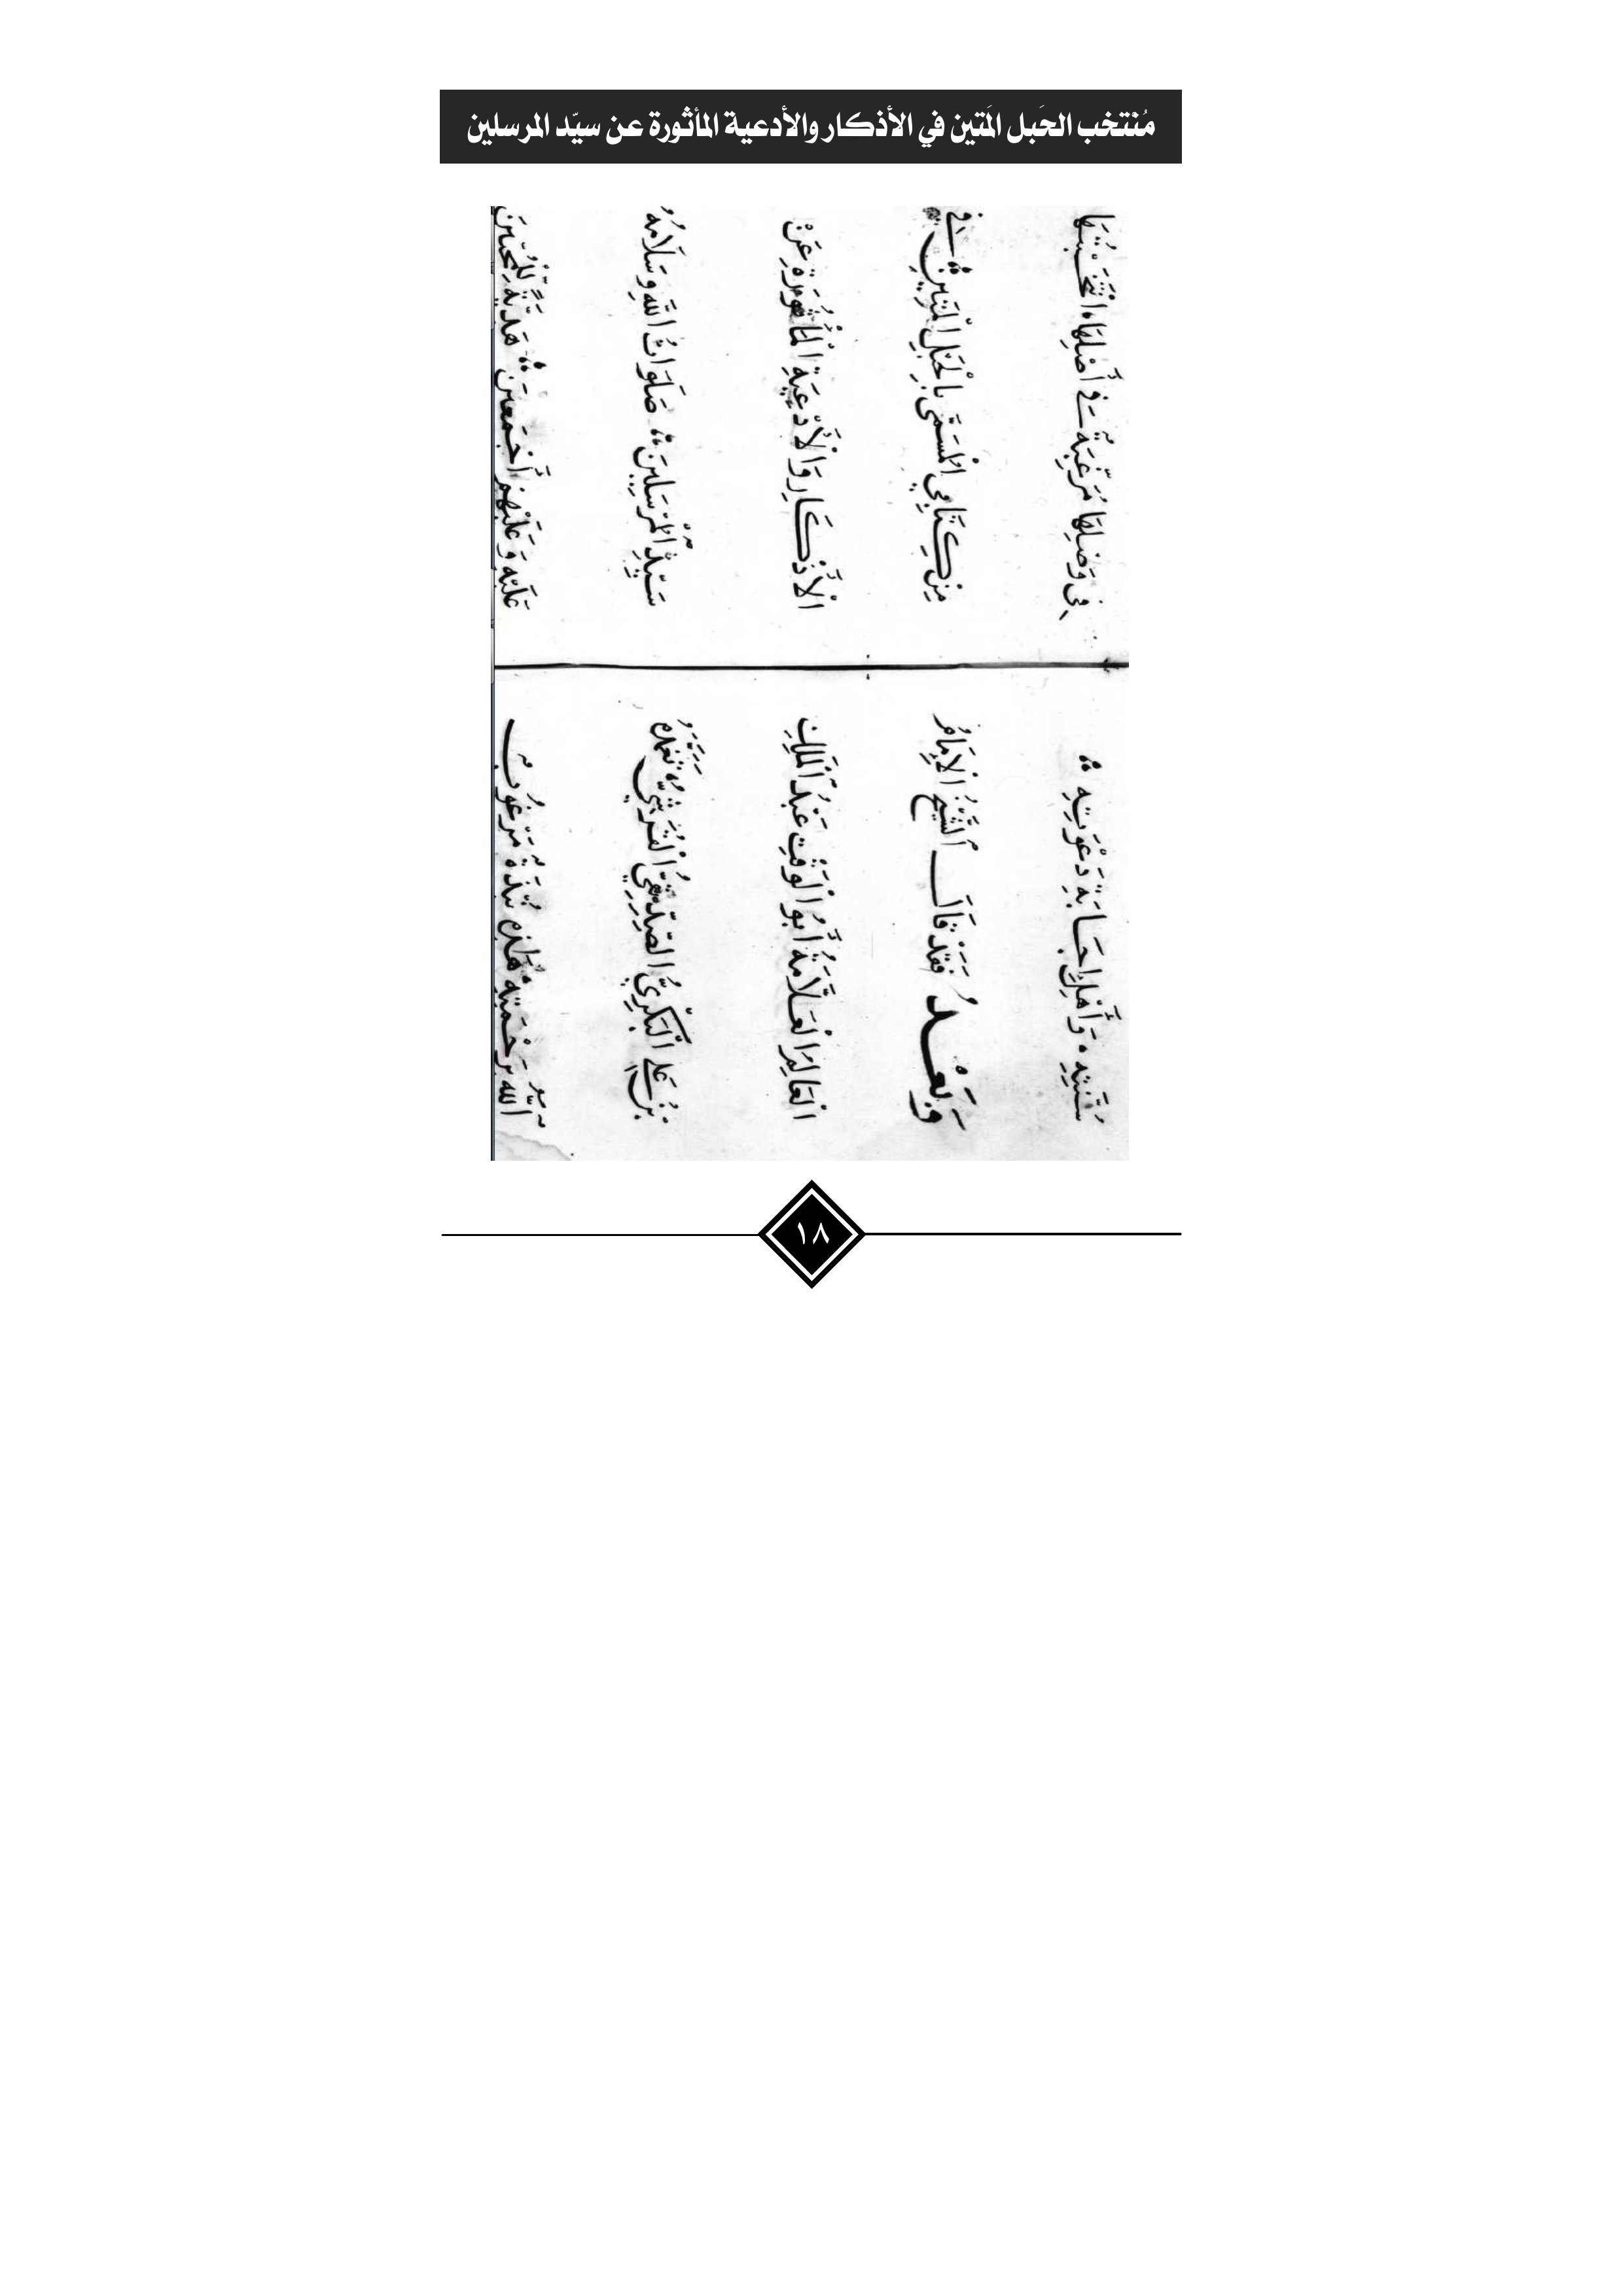 مُنتخب الحَبل المَتين في الأذكار والأدعية المأثورة عن سيّد المرسلين
سُنَّتِهِ، وَأَهْلِ إِجَابَةِ دَعْوَتِهِ
وَبَعْدُ فَقَدْ قَالَ الشَّيْخُ الْإِمَامُ
الْعَالِمُ الْعَلَّامَةُ أَبُو الْوَقْتِ عَبْدُ الْمَلِكِ
بْنُ عَلِي الْبَكْرِيُّ الصِّدِّيقِيُّ الْقُرَشِيُّ تَغَمَّدَهُ
اللهُ بِرَحْمَتِهِ هَذِهِ نُبْذَةٌ مَرْغُوبٌ
فِي وَصْلِهَا مُرَغَّبَةٌ فِي أَصْلِهَا، انْتَخَبْتُهَا
مِنْ كِتَابِي الْمُسَمَّى بِالْحَبْلِ الْمَتِينِ فِي
الْأَذْكَارِ وَالْأَدْعِيَةِ الْمَأْثُورَةِ عَنْ
سَيِّدِ الْمُرْسَلِينَ صَلَوَاتُ اللهِ وَسَلَامُهُ
عَلَيْهِ وَعَلَيْهِمْ أَجْمَعِينَ هَدِيَّةً لِلْمُحِبِّينَ
١٨